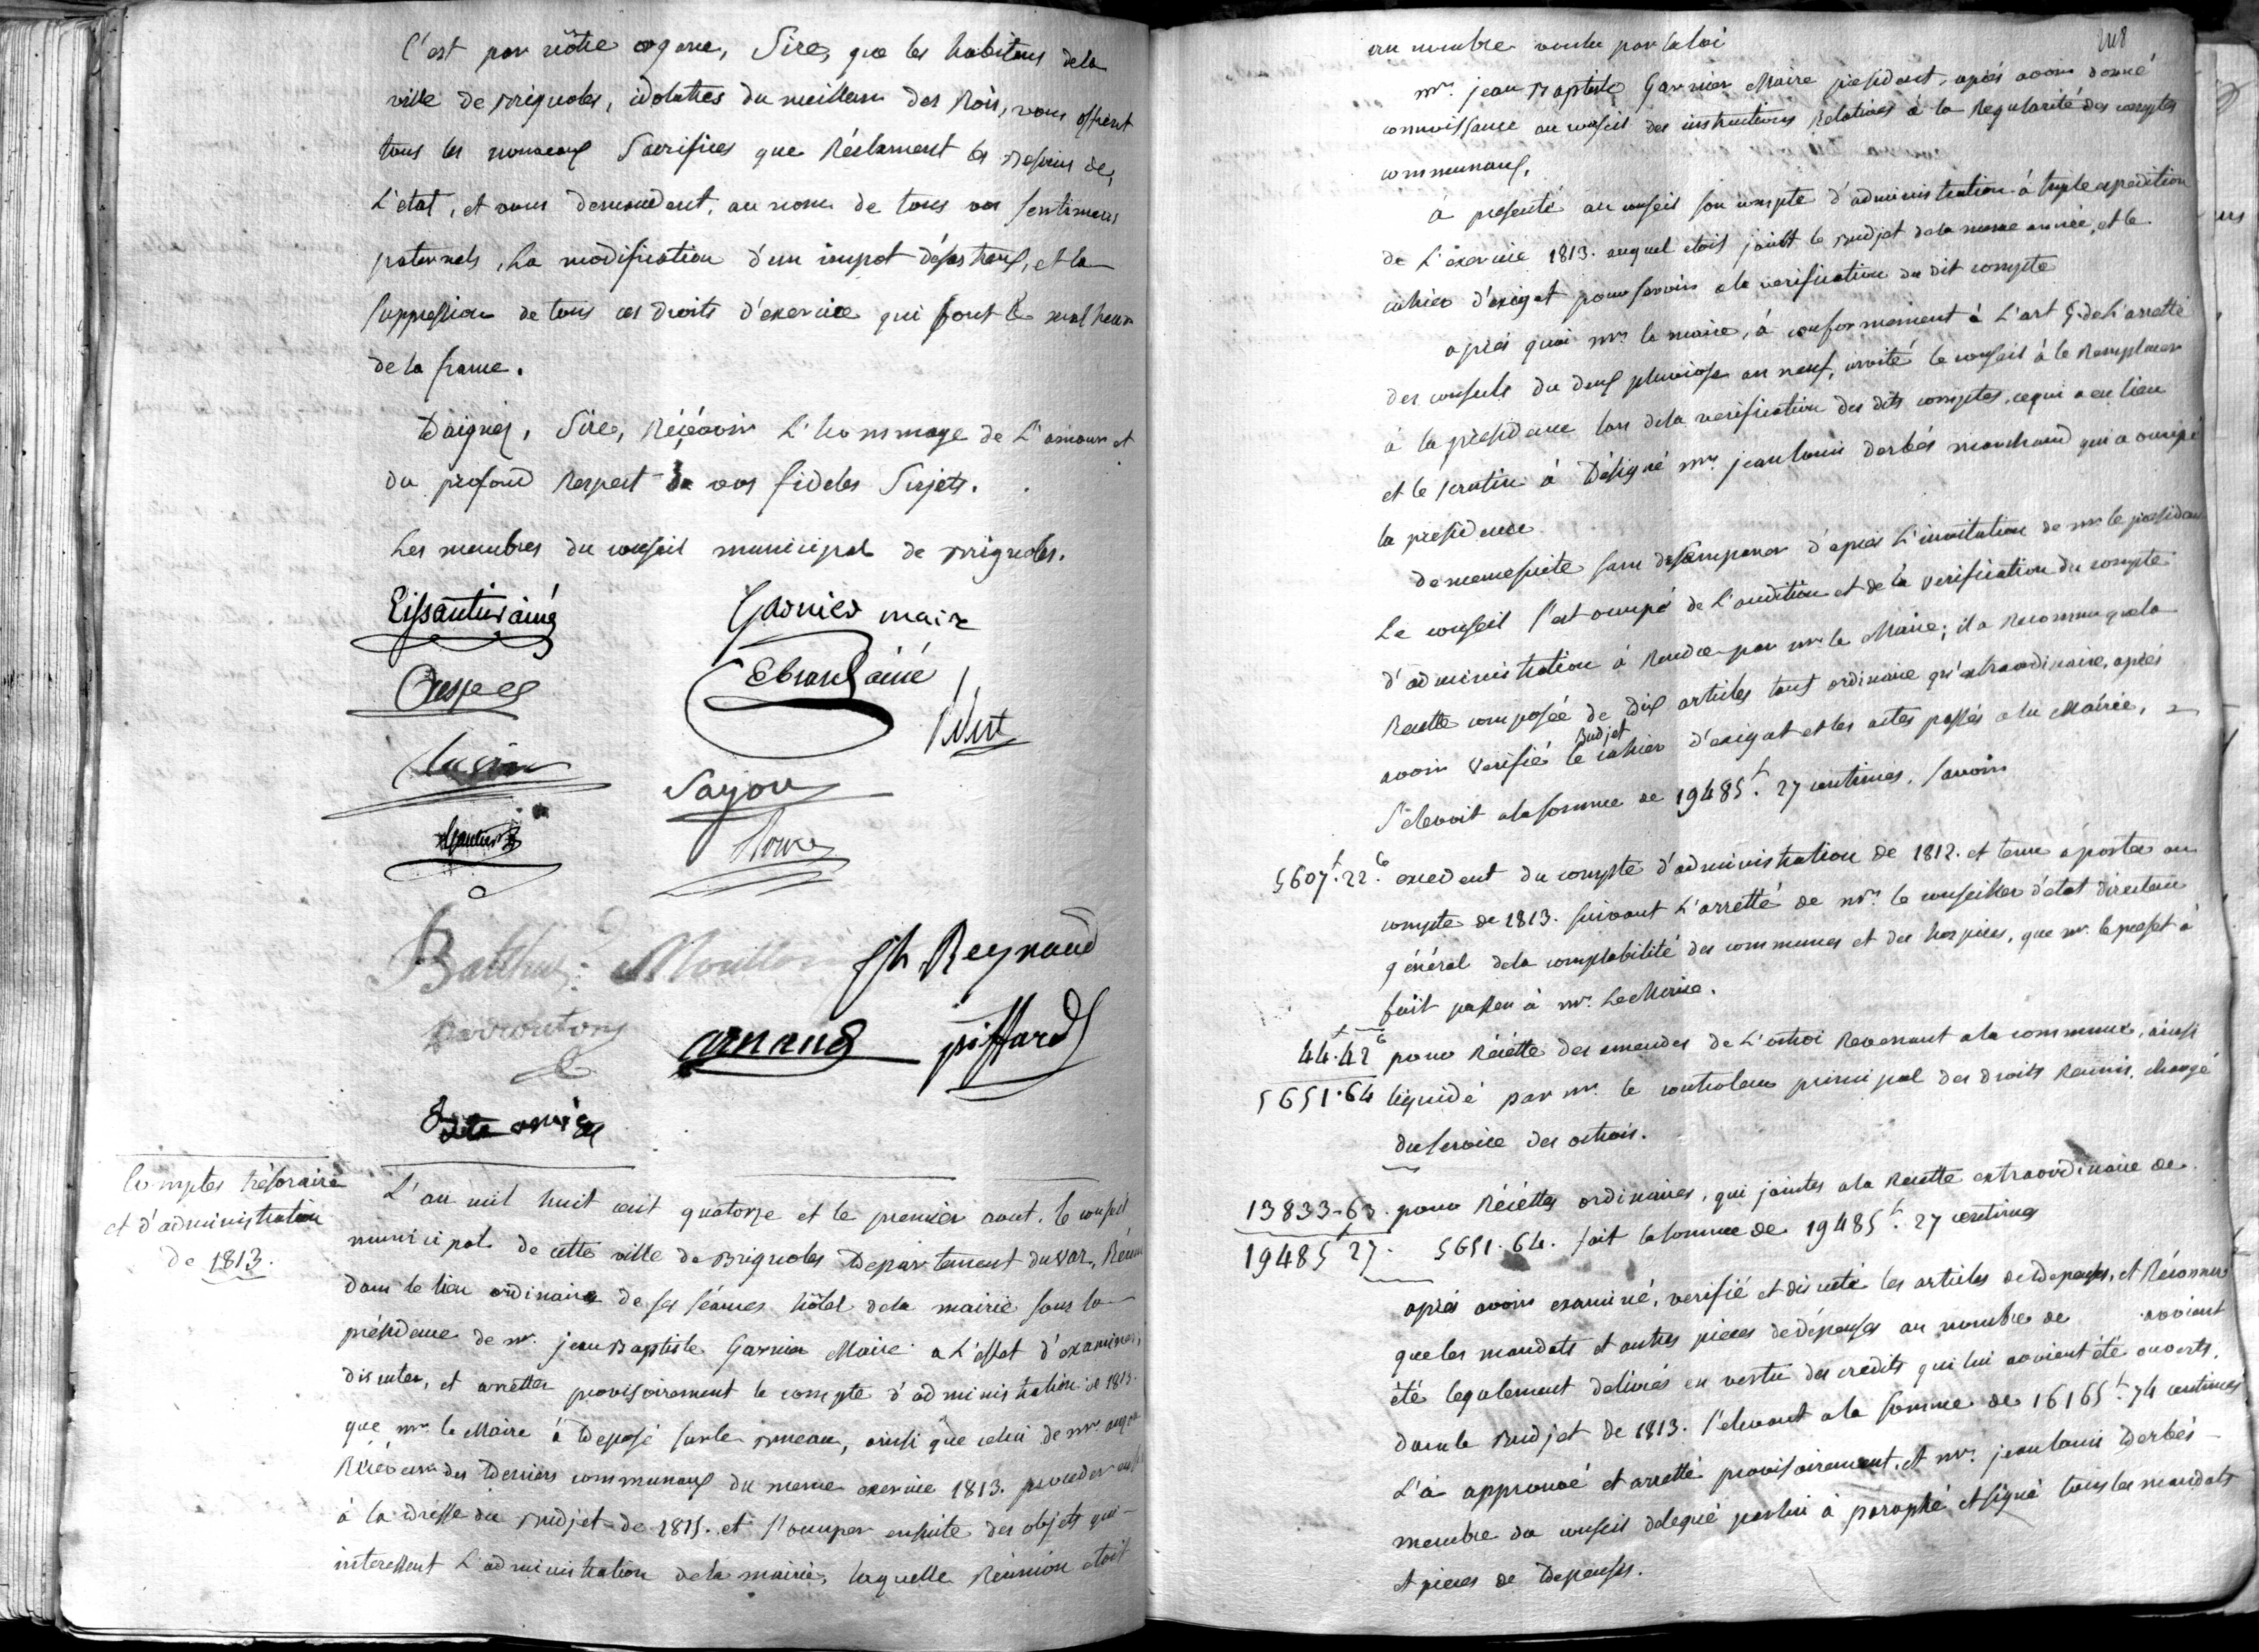 C'est par nôtre organe, Sire, que les habitans dela
ville de Brignoles, idolatres du meilleur des Rois, vous offrent
tous les nouveaux Sacrifices que Réclament les Besoins de
L'etat, et vous demandent, au nom de tous vos Sentimens
paternels, La modification d'un impot désastreux, et la
Suppression de tous ces droits d'exercice qui font le malheur
de la france.
Daignez, Sire, Récévoir L'hommage de L'amour et
du profond Respect de vos fideles Sujets.
Les membres du conseil municipal de Brignoles.
Garnier maire
Ebrard ainé
Sayou
Ch Reynaud
Arnaud
piffard
Comptes trésoraire
et d'administration
de 1813.
L'an mil huit cent quatorze et le premier aout. le conseil
municipal de cette ville de Brignoles Departement du Var, Réuni
dans le lieu ordinaire de ses séances hôtel dela mairie sous la
présidence de mr. jean Baptiste Garnier Maire a L'effet d'examiner,
discuter, et arretter provisoirement le compte d'administration de 1813.
que mr le Maire à Deposé sur le Bureau, ainsi que celui de mr
Récéveur des Deniers communaux du meme exercice 1813. proceder
à la dresse du Budjet de 1815. et s'occuper ensuite des objets qui
interessent L'administration dela mairie, laquelle Réunion etoit
118
au nombre voulu par la loi
mr. jean Baptiste Garnier Maire president, après avoir donné
connoissance au conseil des instructions Relatives à la Regularité des comptes
communaux,
à presenté au conseil son compte d'administration à triple expedition
de L'exercice 1813. auquel etoit joint le Budjet dela meme année, et le
cahier d'exigat pour servir ala verification du dit compte
après quoi mr le maire, à conformement à L'art 5. de L'arretté
des consuls du deux pluviose an neuf, invité le conseil à le Remplacer
à la présidence lors dela verification des dits comptes, ce qui a eu lieu
et le scrutin à Désigné mr. jean louis Derbés marchand qui a occupé
la presidence
de meme suite sans desemparer d'après L'invitation de mr le president
Le conseil s'est occupé de L'audition et de la verification du compte
d'administration à Rendre par mr le Maire; il a Reconnu que la
Recette composée de Dix articles tant ordinaire qu'extraordinaire, après
avoir Verifié le Budjet cahier d'exigat et les actes passés ala Mairie,
S'elevoit ala somme de 19485f. 27 centimes. Savoir
5607f. 22c. excedent du compte d'administration de 1812. et tenu à porter au
compte de 1813. suivant L'arretté de mr. le conseiller d'etat directeur
général dela comptabilité des communes et des hospices, que mr. le prefet à
fait passer à mr. Le Maire.
44f. 42c pour Récétte des amendes de L'octroi Revenant ala commune, ainsi
5651.64 liquidé par mr. le controleur principal des droits Reunis, chargé
du Service des octrois.
13833-63. pour Récéttes ordinaires, qui jointes ala Recette extraordinaire de
19485f 27. 5651. 64. fait la somme de 19485f. 27 centimes
après avoir examiné, verifié et discuté les articles de Depenses, et Réconnu
que les mandats et autres pieces de dépenses au nombre de avoient
été legalement delivrés en vertu des credits qui lui avoient été ouverts,
dans le Budjet de 1813. S'elevant ala somme de 16165f. 74 centimes
L'à approuvé et arretté provisoirement, et mr. jean louis Derbés
membre du conseil delegué par lui à paraphé et signé tous les mandats
et pieces de Depenses.